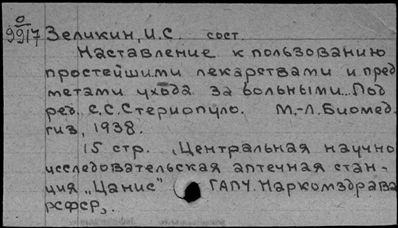 0
9917 Зеликин, И.С. сост.
Наставление к пользованию
простейшими лекарствами и пред
метами ухода за больными.. Под
ред. С.С. Стериопуло. М.-Л. Биомед-
гиз, 1938.
15 стр. (Центральная научно
исследовательская аптечная стан-
ция „Цанис" ГАПУ. Наркомздрава
РСФСР).